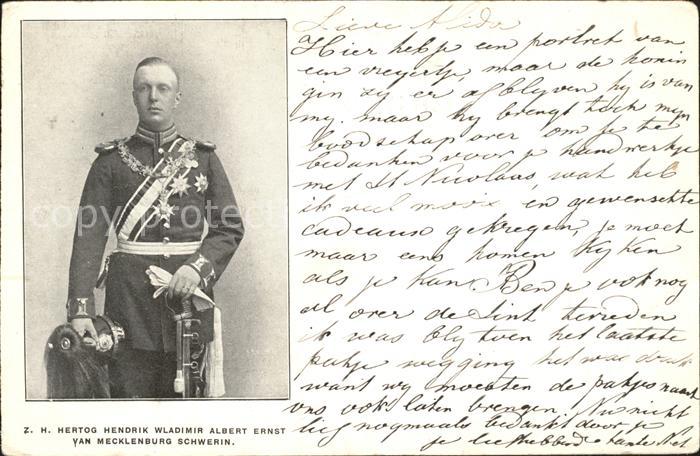 Lieve Alida
Hier heb je een portret van
een vrijertje, maar de konin
gin zij er afblijven hij is van
mij. maar hij brengt toch mijn
boodschap over om je te
bedanken voor je handwerkje
met St Nicolaas, wat heb
ik veel mooie en gewenschte
cadeaux gekregen, je moet
maar eens komen kijken
als je kan. Ben je ook nog
al over de Sint tevreden
ik was blij toen het laatste
pakje wegging het was druk
want wij moesten de pakjes naast
ons ook laten brengen. Nu nicht
lief nogmaals bedankt door je
je liefhebbende tante
Z. H. HERTOG HENDRIK WLADIMIR ALBERT ERNST
VAN MECKLENBURG SCHWERIN.
copyright protected